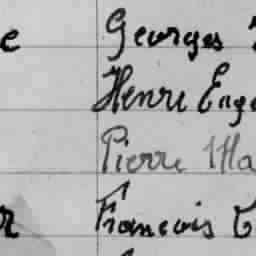 e Georges
Henri Euge
Pierre Ma
r François